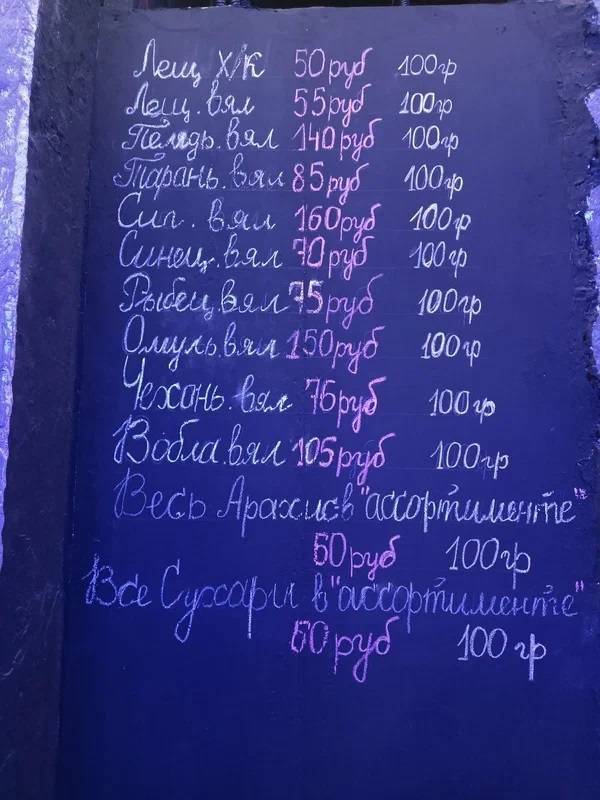 Лещ Х/К 50руб 100гр
Лещ.вял 55руб 100гр
Пелядь.вял 140руб 100гр
Тарань.вял 85руб 100гр
Сиг.вял 160руб 100гр
Синец.вял 70руб 100гр
Рыбец.вял 75руб 100гр
Омуль.вял 150руб 100гр
Чехонь.вял 76руб 100гр
Вобла.вял 105руб 100гр
Весь Арахис в "ассортименте"
60руб 100гр
Все Сухари в "ассортименте"
60руб 100гр